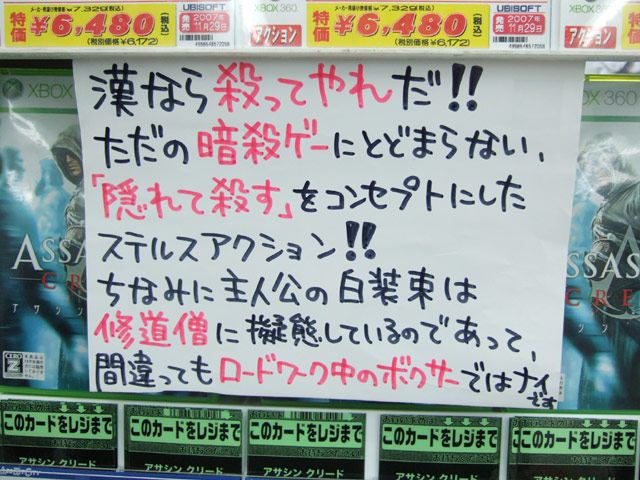 メーカー希望小売価格¥7,329(税込)
特価 ¥6,480
(税別価格¥6,172)
UBISOFT
発売 2007年 11月29日
XBOX 360
アクション
メーカー希望小売価格¥7,329(税込)
特価 ¥6,480
(税別価格¥6,172)
UBISOFT
発売 2007年 11月29日
XBOX 360
アクション
特価
漢なら殺ってやれだ!!
ただの暗殺ゲーにとどまらない、
「隠れて殺す」をコンセプトにした
ステルスアクション!!
ちなみに主人公の白装束は
修道僧に擬態しているのであって、
間違ってもロードワーク中のボクサーではナイ
です
XBOX
ASSAS
CRE
アサシン
CERO
Z
BOX 360
ASSAS
CRE
アサシン
このカードをレジまで
このカードをレジまで
このカードをレジまで
このカードをレジまで
このカードをレジまで
アサシン クリード
アサシン クリード
アサシン クリード
アサシン クリード
アサシン クリード